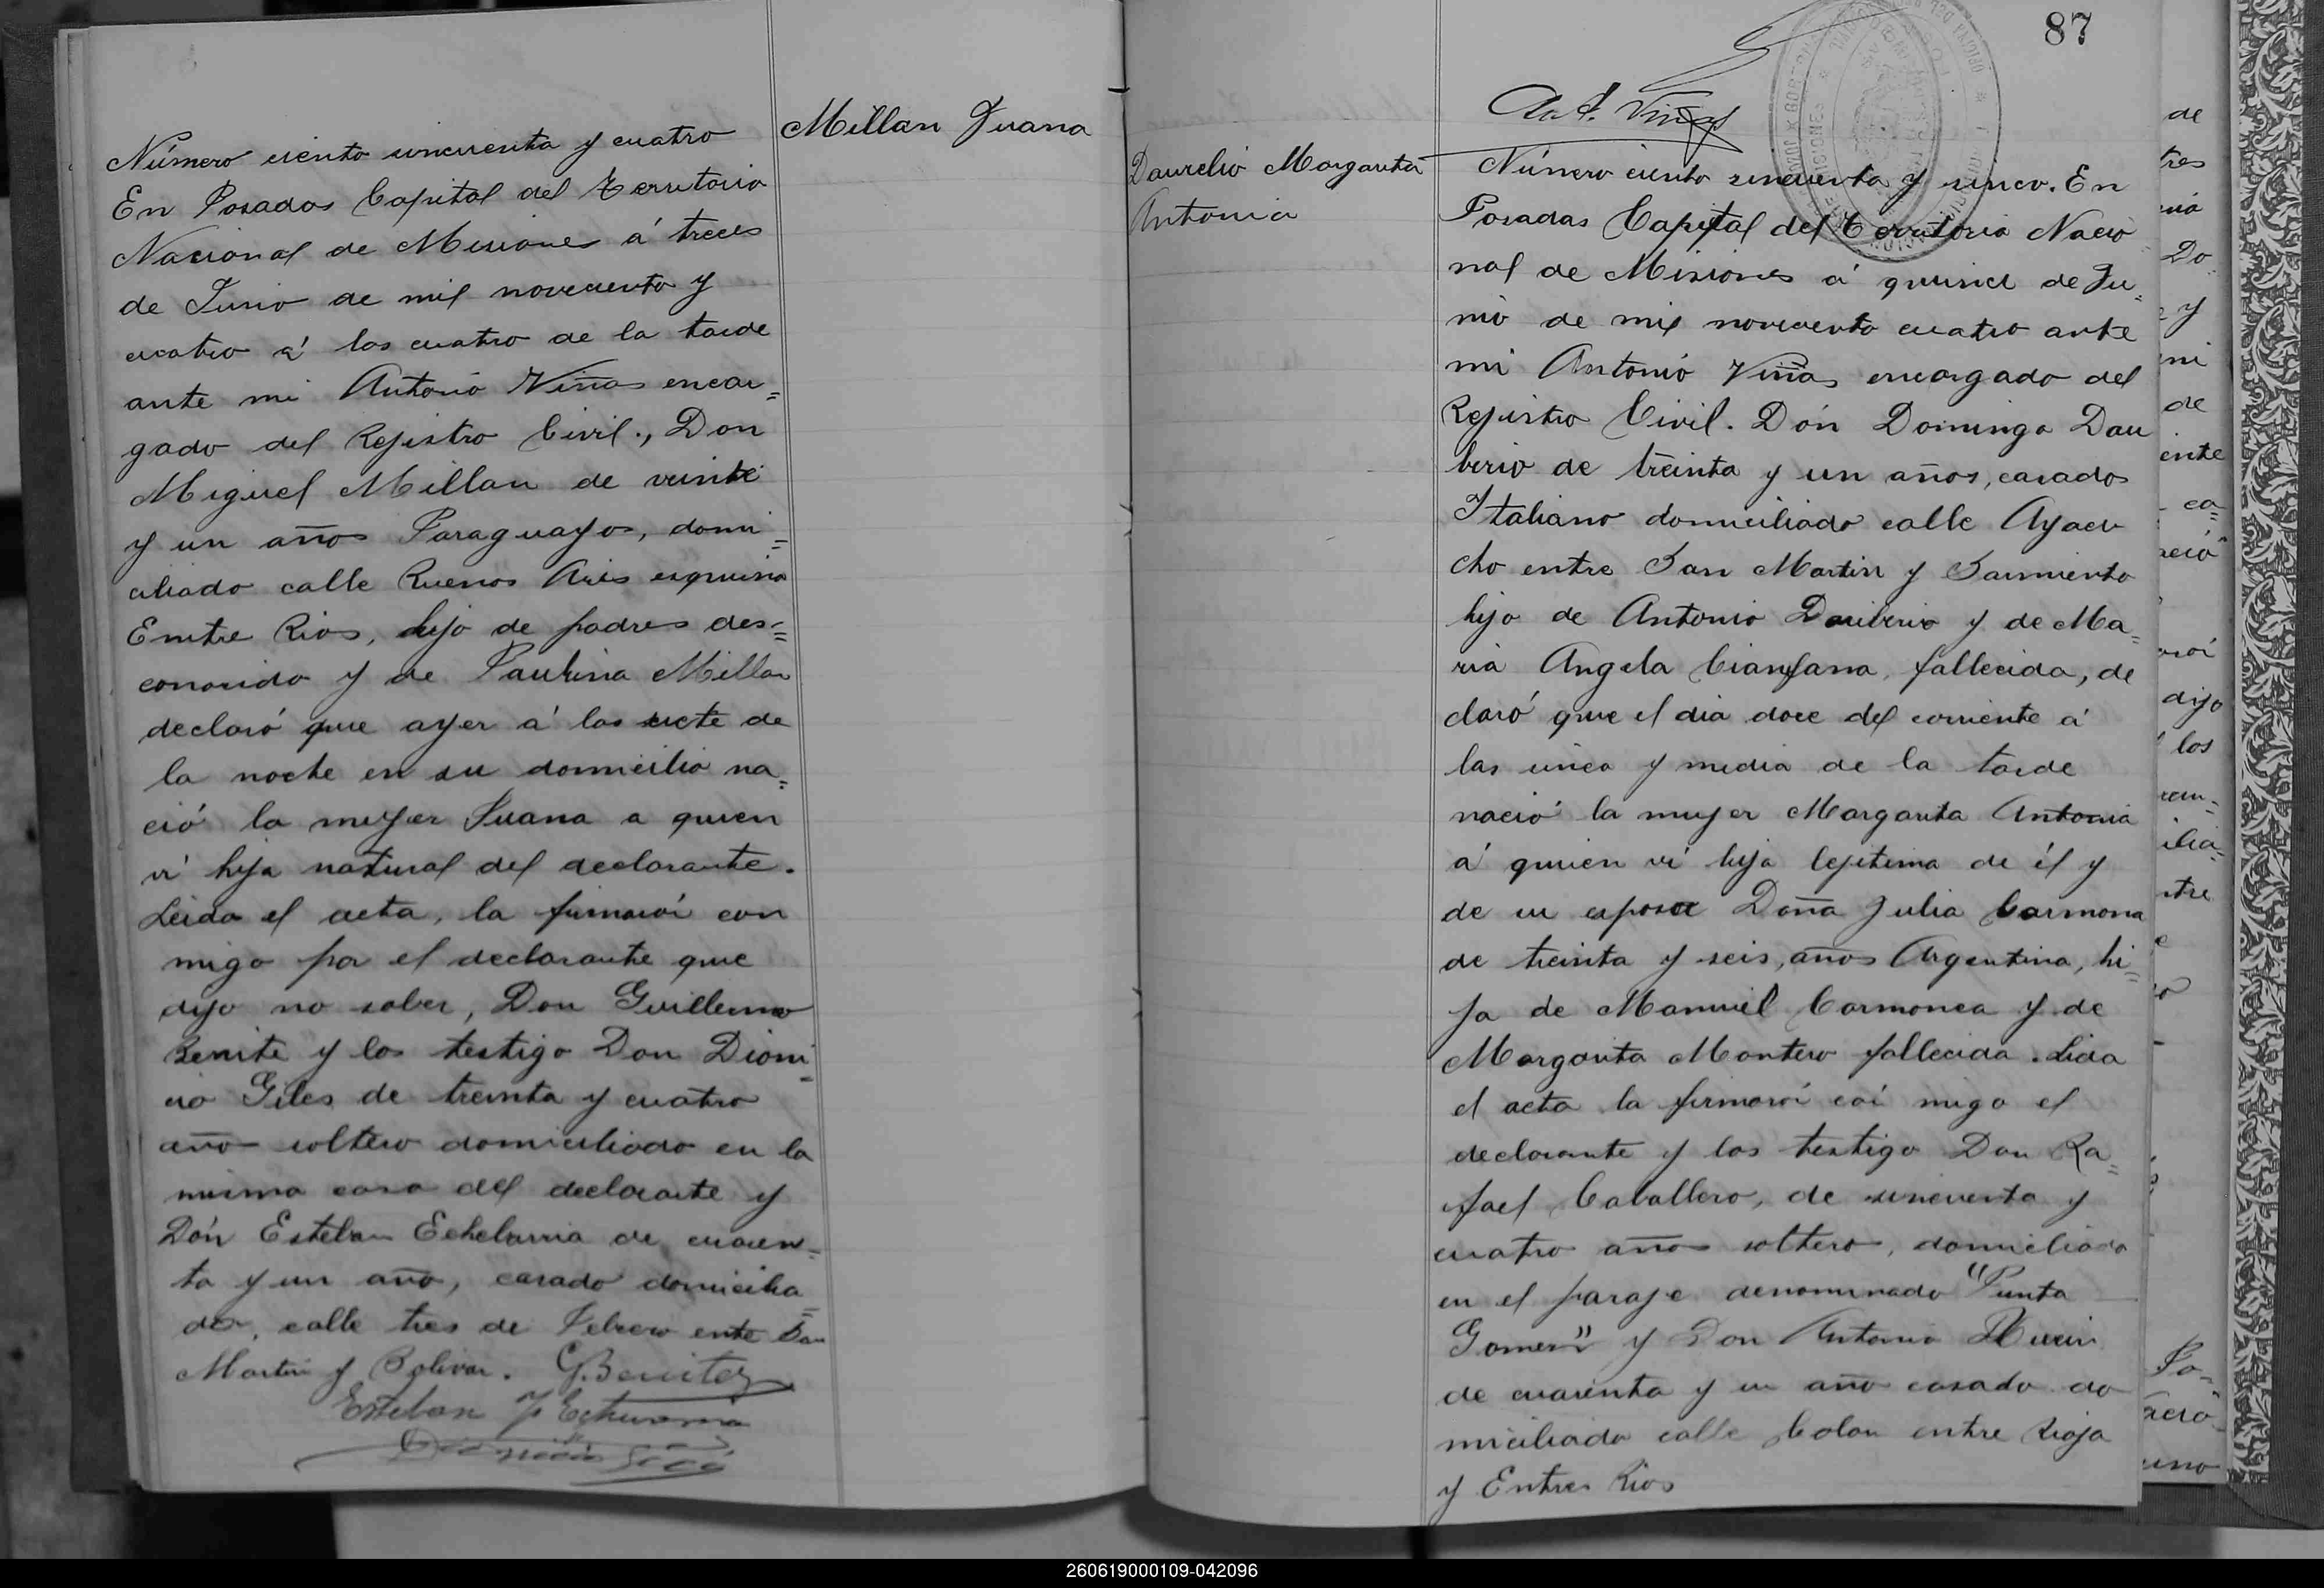 Número ciento cincuenta y cuatro
En Posadas Capital del Territorio
Nacional de Misiones á trece
de Junio de mil novecento y
cuatro á las cuatro de la tarde
ante mi Antonio Viñas encar=
gado del Rejistro Civil., Don
Miguel Millan de veinte
y un años Paraguayo, domi=
ciliado calle Buenos Aires esquina
Emtre Rios, hijo de padres des=
conocido y de Paulina Millan
declaró que ayer á las siete de
la noche en su domicilio na=
ció la mujer Juana a quien
vi hija natural del declarante.
Leida el acta, la firmará con
migo por el declarante que
dijo no saber, Don Guillermo
Benite y los testigo Don Dioni=
cio Giles de treinta y cuatro
año soltero domiciliado en la
misma casa del declarante y
Dón Esteban Echebarria de cuaren=
ta y un año, casado domicilia=
do, calle tres de Febrero ente San
Martin y Bolivar. G. Benitez
Esteban
Millan Juana
87
Ant. Viñas
Daurelio Margarita
Antonia
Número ciento cincuenta y cinco. En
Posadas Capital del Territorio Nacio
nal de Misiones á quince de Ju=
nio de mil novecento cuatro ante
mi Antonio Viñas encargado del
Rejistro Civil. Dón Domingo Dau
berio de treinta y un años, casado
Italiano domiciliado calle Ayacu
cho entre San Martin y Sarmiento
hijo de Antonio Dauberio y de Ma=
ria Angela Cianfana, fallecida, de
claró que el dia doce del corriente á
las cinco y media de la tarde
nació la mujer Margarita Antonia
á quien vi hija lejitima de él y
de su esposa Doña Julia Carmona
de treinta y seis, años Argentina, hi=
ja de Manuel Carmona y de
Margarita Montero fallecida. Leida
el acta la firmará con migo el
declarante y los testigo Don Ra=
fael Caballero, de cincuenta y
cuatro años soltero, domiciliado
en el paraje denominado "Punta
Gomez" y Don Antonio
de cuarenta y un año casado do
miciliado calle Colon entre Rioja
y Entres Rios
de
tres
Do
y
mi
de
ente
ca=
ació
dijo
los
ilia=
ntre
Po=
ació
uno
260619000109-042096